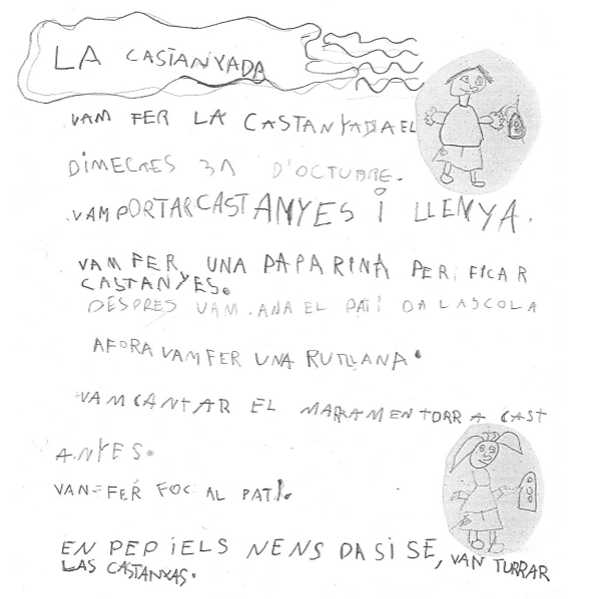 LA CASTANYADA
VAM FER LA CASTANYADA EL
DIMECRES 31 D'OCTUBRE.
.VAM PORTAR CASTANYES I LLENYA.
VAM FER UNA PAPARINA PER FICAR
CASTANYES.
DESPRES VAM .ANA EL PATI DA LASCOLA
AFORA VAM FER UNA RUTLLANA.
VAM CANTAR EL MARRAMEN TORR A CAST
ANYES.
VAN FER FOC AL PATI.
EN PEP I ELS NENS DA SI SE, VAN TURRAR
LAS CASTANYAS.